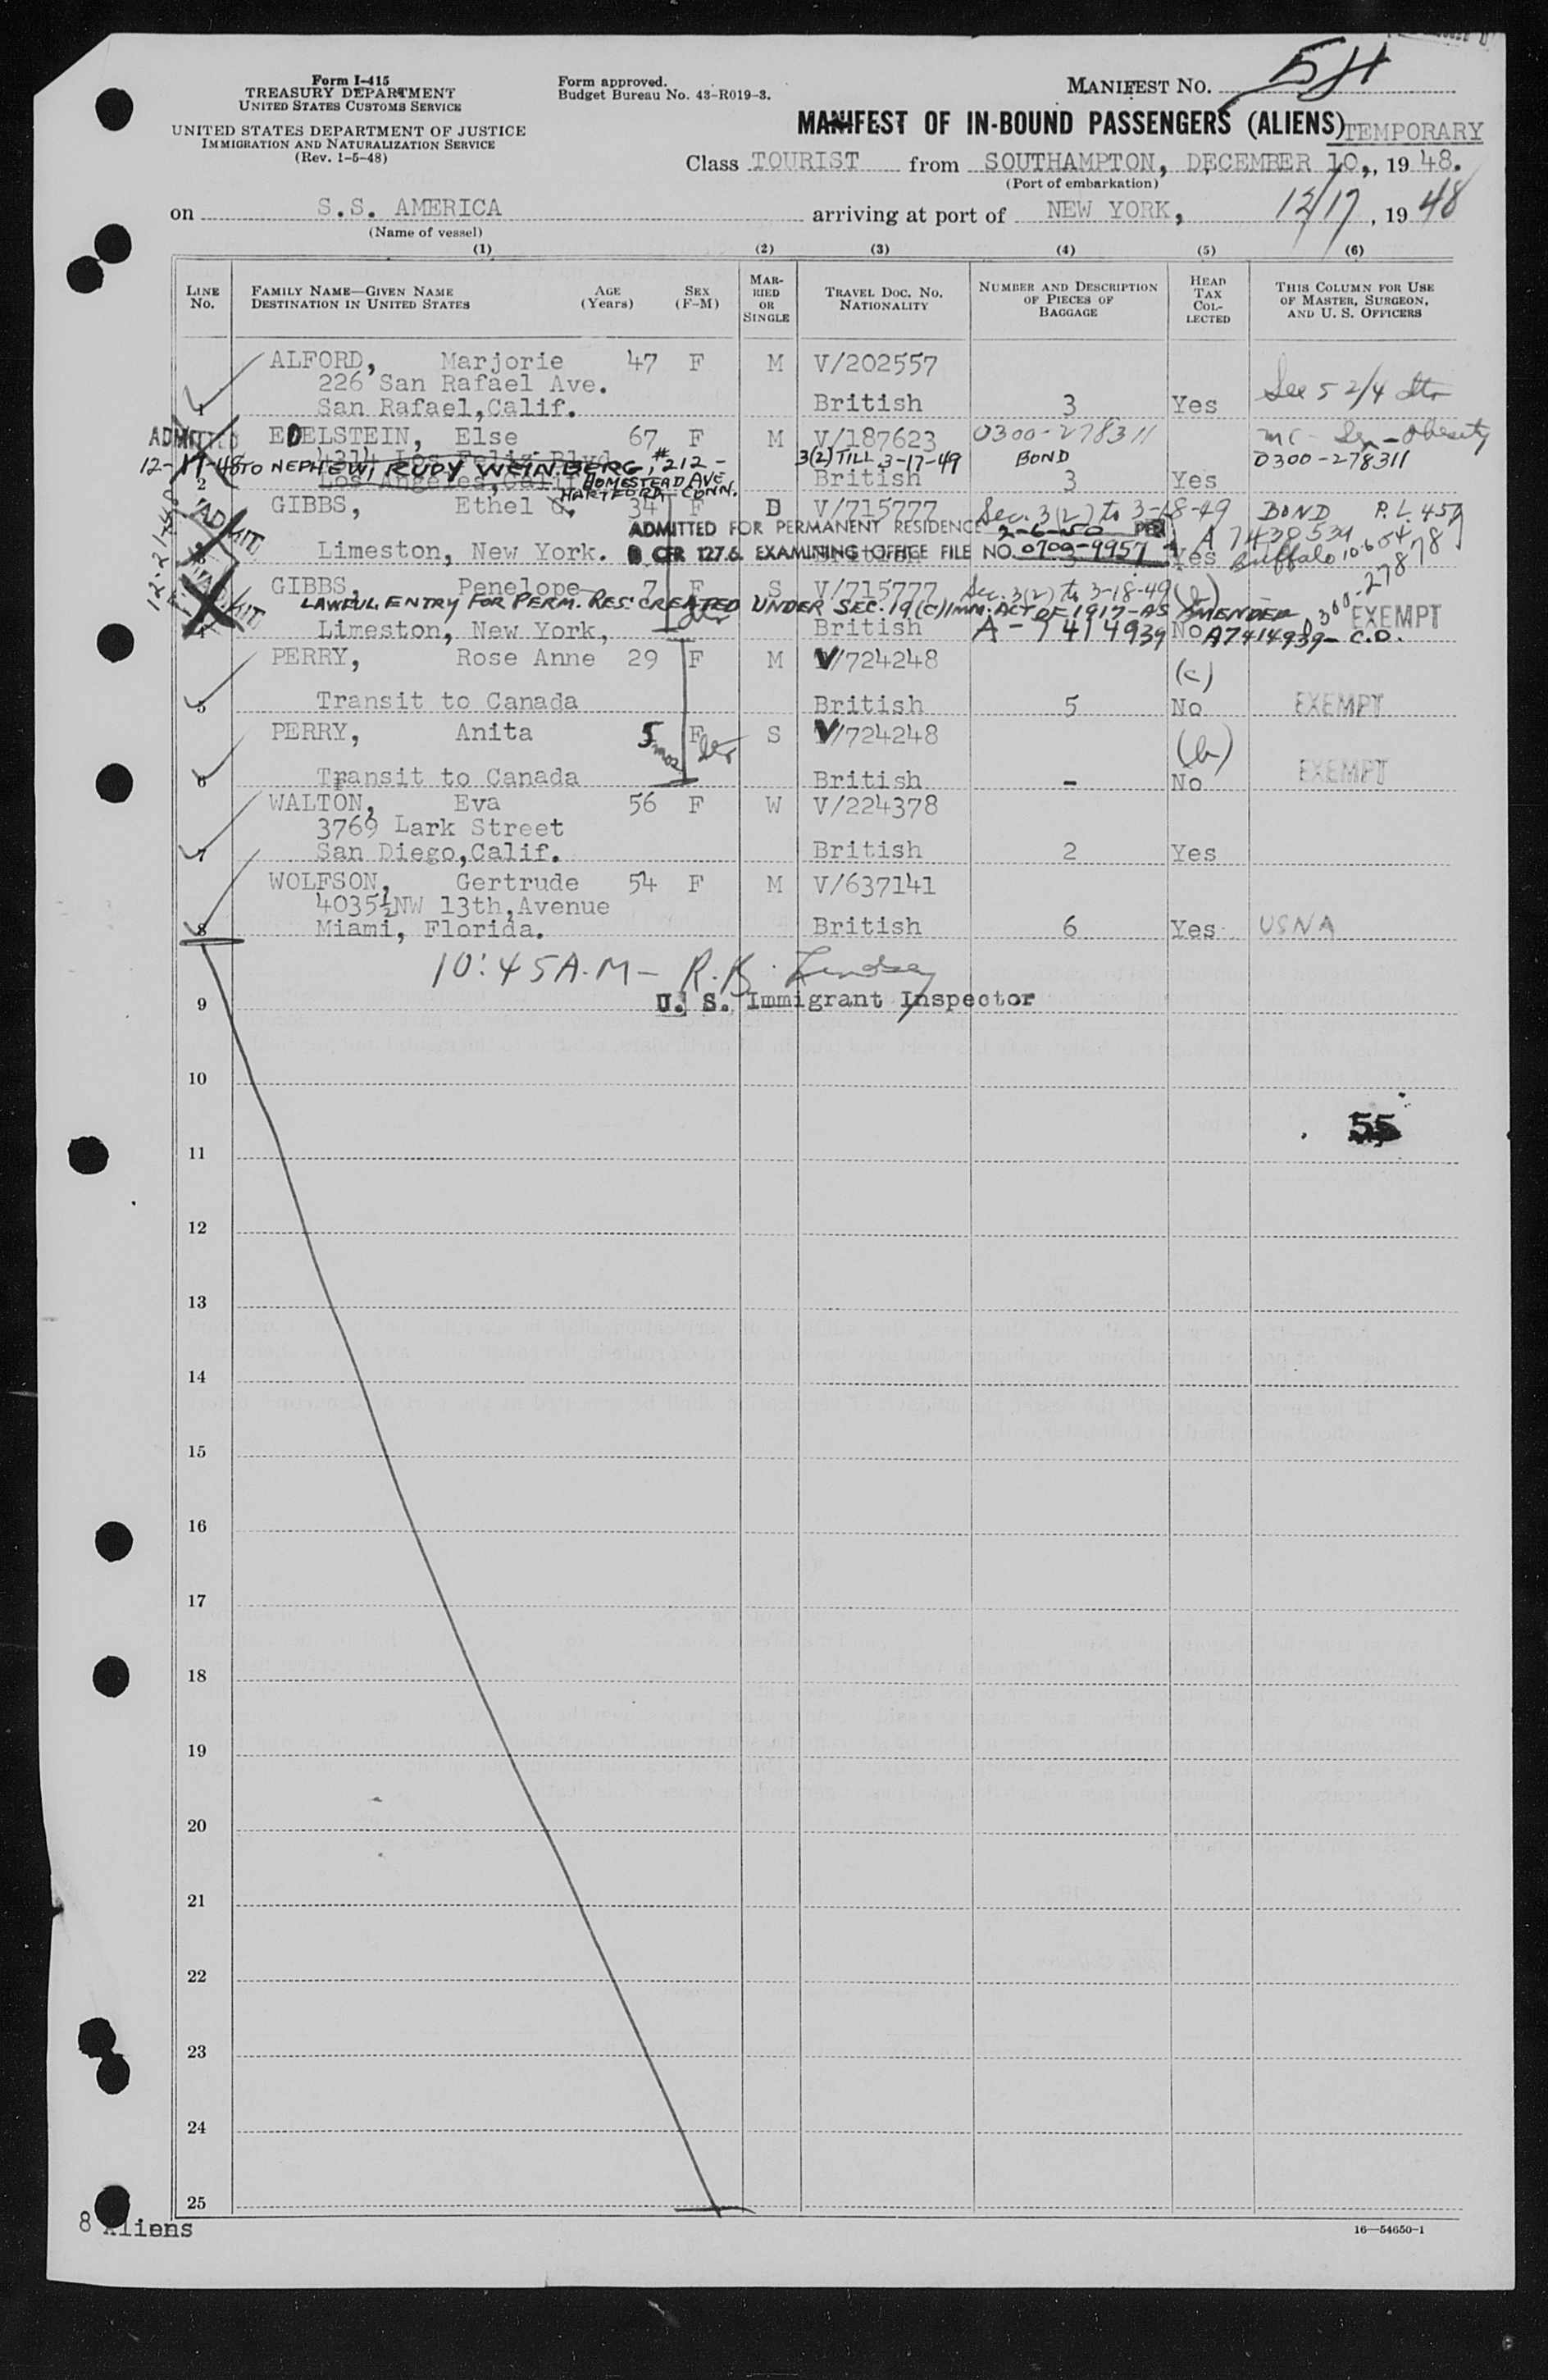 Form I-415
TREASURY DEPARTMENT
UNITED STATES CUSTOMS SERVICE
UNITED STATES DEPARTMENT OF JUSTICE
IMMIGRATION AND NATURALIZATION SERVICE
(Rev. 1-5-48)
Form approved.
Budget Bureau No. 43-R019-3.
MANIFEST NO. 54
MANIFEST OF IN-BOUND PASSENGERS (ALIENS) TEMPORARY
Class TOURIST from SOUTHAMPTON, DECEMBER 10, 1948.
(Port of embarkation)
on S.S. AMERICA arriving at port of NEW YORK, 12/17, 1948
(Name of vessel)
(1) (2) (3) (4) (5) (6)
LINE No.
FAMILY NAME—GIVEN NAME
DESTINATION IN UNITED STATES
AGE (Years)
SEX (F-M)
MARRIED OR SINGLE
TRAVEL DOC. NO. NATIONALITY
NUMBER AND DESCRIPTION OF PIECES OF BAGGAGE
HEAD TAX COLLECTED
THIS COLUMN FOR USE OF MASTER, SURGEON, AND U. S. OFFICERS
ALFORD, Marjorie 47 F M V/202557
226 San Rafael Ave.
1 San Rafael, Calif. British 3 Yes
ADMITTED EDELSTEIN, Else 67 F M V/187623 0300-278311
4314 Los Feliz Blvd
12-17-48 TO NEPHEW, RUDY WEINBERG, #212- 3(2) TILL 3-17-49 BOND 0300-278311
2 Los Angeles, Calif HOMESTEAD AVE British 3 Yes
HARTFORD, CONN.
GIBBS, Ethel G. 34 F D V/715777 Sec. 3(2) to 3-18-49 BOND P.L. 457
ADMITTED FOR PERMANENT RESIDENCE 2-6-50 PER A 7438534
8 CFR 127.6. EXAMINING OFFICE FILE NO. 0700-9957
3 Limeston, New York. British 3 Yes Buffalo
ADMIT
GIBBS, Penelope 7 F S V/715777 Sec. 3(2) to 3-18-49 (b)
LAWFUL ENTRY FOR PERM. RES. CREATED UNDER SEC. 19(C) IMM. ACT OF 1917-AS AMENDED
4 Limeston, New York, British A-7414939 No A7414939-C.D. EXEMPT
ADMIT
PERRY, Rose Anne 29 F M V/724248
(c)
5 Transit to Canada British 5 No EXEMPT
PERRY, Anita 5 mos F S V/724248
(b)
6 Transit to Canada British - No EXEMPT
WALTON, Eva 56 F W V/224378
3769 Lark Street
7 San Diego, Calif. British 2 Yes
WOLFSON, Gertrude 54 F M V/637141
4035½NW 13th, Avenue
8 Miami, Florida. British 6 Yes USNA
10:45 A.M- R.B. Lindsay
U. S. Immigrant Inspector
9
10
55
11
12
13
14
15
16
17
18
19
20
21
22
23
24
25
8 Aliens
16—54650-1